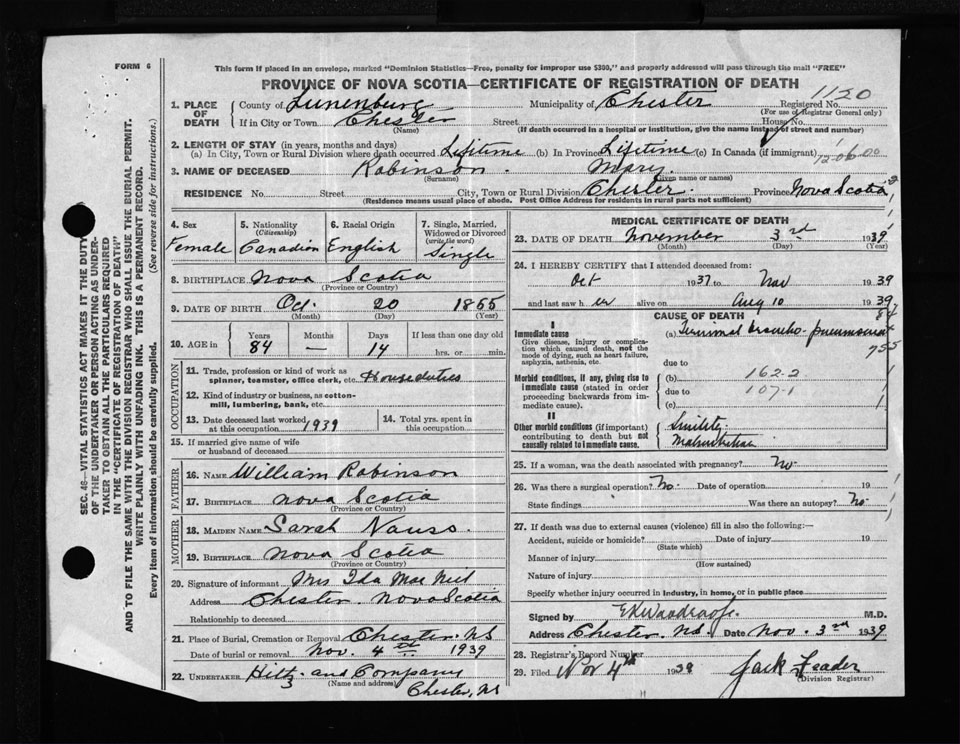 FORM 6
This form if placed in an envelope, marked "Dominion Statistics—Free, penalty for improper use $300," and properly addressed will pass through the mail "FREE"
PROVINCE OF NOVA SCOTIA—CERTIFICATE OF REGISTRATION OF DEATH
1120
1. PLACE OF DEATH
County of Lunenburg Municipality of Chester Registered No.
(For use of Registrar General only)
If in City or Town Chester Street House No.
(Name) (If death occurred in a hospital or institution, give the name instead of street and number)
2. LENGTH OF STAY (in years, months and days)
(a) In City, Town or Rural Division where death occurred Lifetime (b) In Province Lifetime (c) In Canada (if immigrant)
3. NAME OF DECEASED Robinson. Mary.
(Surname) (Given name or names)
RESIDENCE No. Street City, Town or Rural Division Chester. Province Nova Scotia
(Residence means usual place of abode. Post Office Address for residents in rural parts not sufficient)
4. Sex
Female
5. Nationality
(Citizenship)
Canadian
6. Racial Origin
English
7. Single, Married, Widowed or Divorced
(write the word)
Single
8. BIRTHPLACE Nova Scotia
(Province or Country)
9. DATE OF BIRTH Oct. 20 1855
(Month) (Day) (Year)
10. AGE in
Years Months Days If less than one day old
84 — 14 hrs. or min.
OCCUPATION
11. Trade, profession or kind of work as spinner, teamster, office clerk, etc. House duties
12. Kind of industry or business, as cotton-mill, lumbering, bank, etc.
13. Date deceased last worked at this occupation 1939
14. Total yrs. spent in this occupation.
15. If married give name of wife or husband of deceased
FATHER
16. NAME William Robinson
17. BIRTHPLACE Nova Scotia
(Province or Country)
MOTHER
18. MAIDEN NAME Sarah Nauss.
19. BIRTHPLACE Nova Scotia
(Province or Country)
20. Signature of informant Mrs Ida Mac Neil
Address Chester. Nova Scotia
Relationship to deceased
21. Place of Burial, Cremation or Removal Chester. NS
Date of burial or removal Nov. 4th 1939
22. UNDERTAKER Hiltz and Company
(Name and address) Chester, NS
MEDICAL CERTIFICATE OF DEATH
23. DATE OF DEATH November 3rd 1939
(Month) (Day) (Year)
24. I HEREBY CERTIFY that I attended deceased from:
Oct 1937 to Nov 1939
and last saw her alive on Aug 10 1939
CAUSE OF DEATH
I
Immediate cause
Give disease, injury or complication which caused death, not the mode of dying, such as heart failure, asphyxia, asthenia, etc.
(a) Terminal broncho-pneumonia
due to
Morbid conditions, if any, giving rise to immediate cause (stated in order proceeding backwards from immediate cause).
(b) 162-2
due to 107-1
(c)
II
Other morbid conditions (if important) contributing to death but not causally related to immediate cause.
Senility
Malnutrition
25. If a woman, was the death associated with pregnancy? No.
26. Was there a surgical operation? No. Date of operation 19
State findings Was there an autopsy? No.
27. If death was due to external causes (violence) fill in also the following:—
Accident, suicide or homicide? Date of injury 19
(State which)
Manner of injury
(How sustained)
Nature of injury
Specify whether injury occurred in industry, in home, or in public place
Signed by M.D.
Address Chester. N.S. Date Nov. 3rd 1939
28. Registrar's Record Number
29. Filed Nov 4th 1939 Jack Leader
(Division Registrar)
SEC. 46—VITAL STATISTICS ACT MAKES IT THE DUTY
OF THE UNDERTAKER OR PERSON ACTING AS UNDER-
TAKER TO OBTAIN ALL THE PARTICULARS REQUIRED
IN THE "CERTIFICATE OF REGISTRATION OF DEATH"
AND TO FILE THE SAME WITH THE DIVISION REGISTRAR WHO SHALL ISSUE THE BURIAL PERMIT.
WRITE PLAINLY WITH UNFADING INK. THIS IS A PERMANENT RECORD.
Every item of information should be carefully supplied. (See reverse side for instructions.)